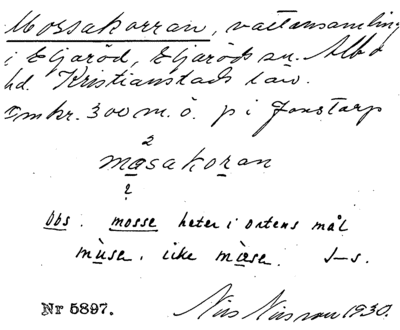 Mossakorran, vattensamling
i Eljaröd, Eljaröds sn. Albo
hd. Kristianstads län.
Omkr. 300 m. ö. p i Jonstorp
2
masakoran
?
Obs. mosse heter i ortens mål
mùse, icke mòse. J-s.
Nr 5897. Nils Nilsson 1930.